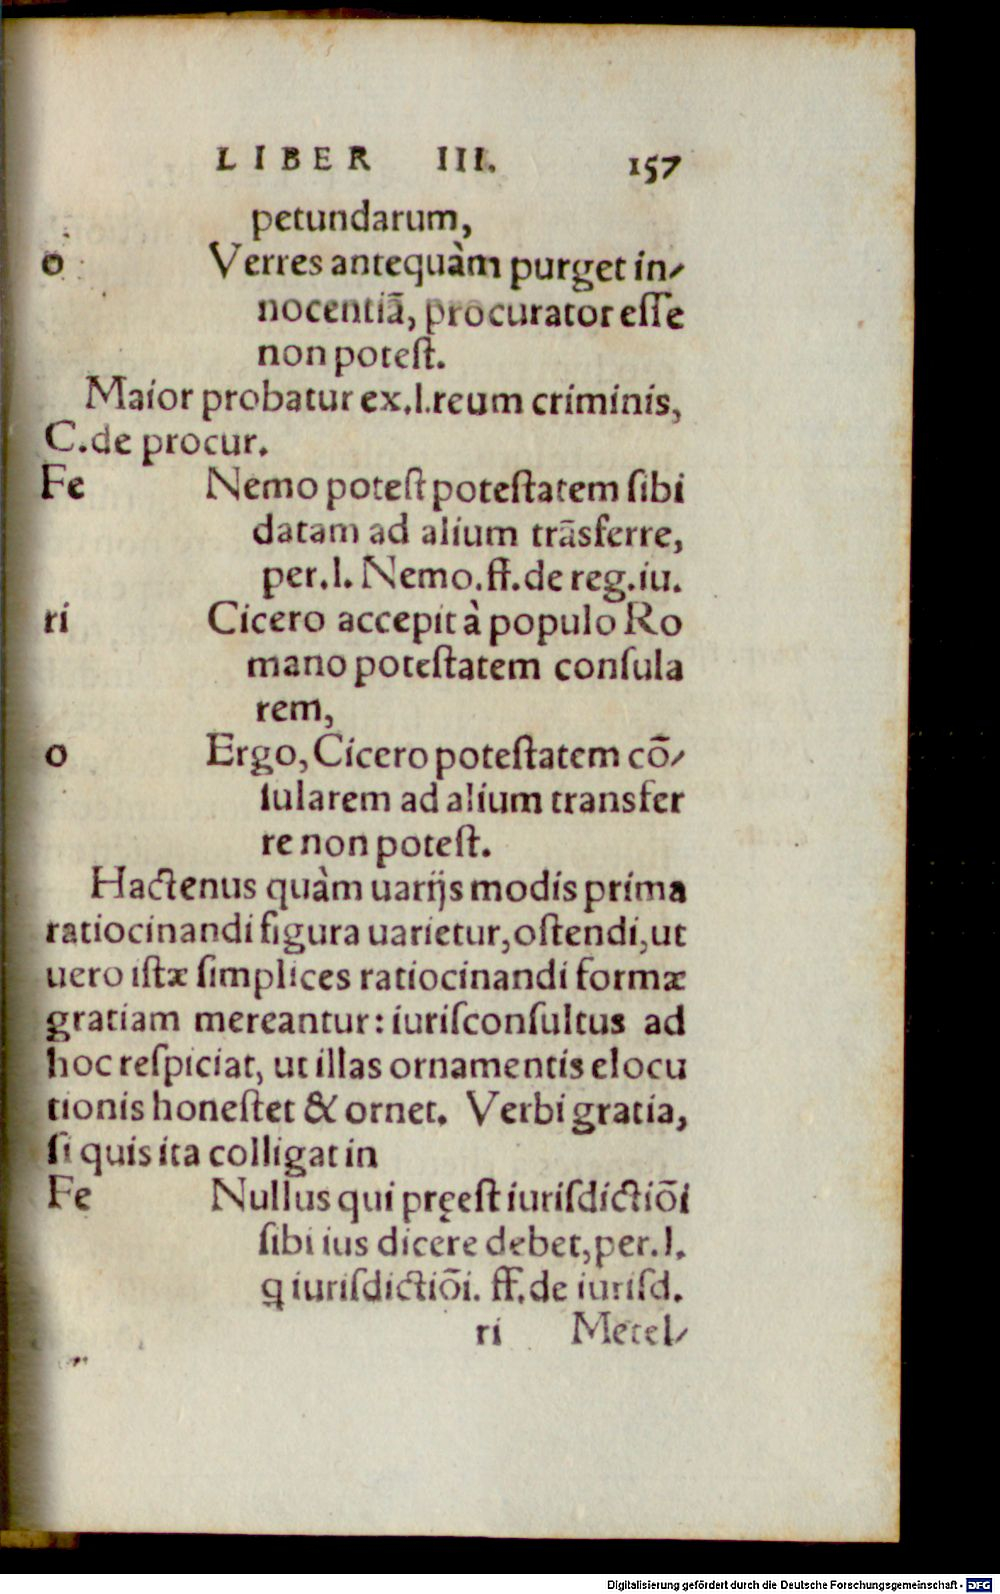 LIBER III. 157
petundarum,
o Verres antequàm purget in⸗
nocentiā, procurator eſſe
non poteſt.
Maior probatur ex.l.reum criminis,
C.de procur.
Fe Nemo poteſt poteſtatem ſibi
datam ad alium trāsferre,
per.l. Nemo.ff.de reg.iu.
ri Cicero accepit à populo Ro
mano poteſtatem conſula
rem,
o Ergo, Cicero poteſtatem cō⸗
ſularem ad alium transfer
re non poteſt.
Hactenus quàm uarijs modis prima
ratiocinandi figura uarietur, oſtendi, ut
uero iſtæ ſimplices ratiocinandi formæ
gratiam mereantur: iuriſconſultus ad
hoc reſpiciat, ut illas ornamentis elocu
tionis honeſtet & ornet. Verbi gratia,
ſi quis ita colligat in
Fe Nullus qui pręeſt iuriſdictiōi
ſibi ius dicere debet, per.l.
q iuriſdictiōi. ff.de iuriſd.
ri Metel⸗
Digitalisierung gefördert durch die Deutsche Forschungsgemeinschaft - DFG